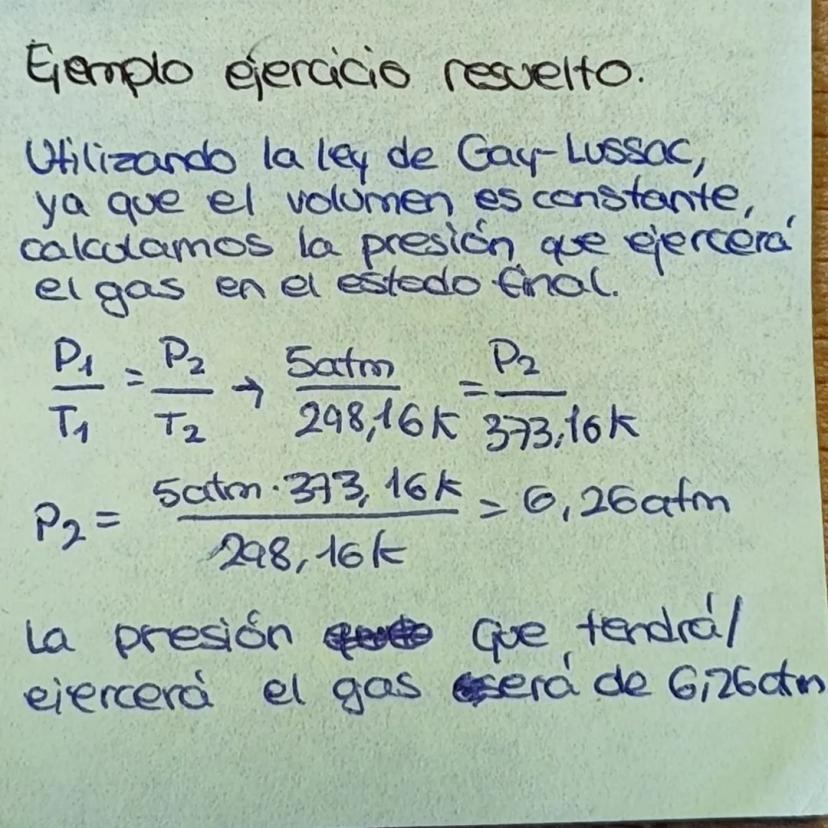 Ejemplo ejercicio resuelto.
Utilizando la ley de Gay-Lussac,
ya que el volumen es constante,
calculamos la presión que ejercerá
el gas en el estado final.
P₁/T₁ = P₂/T₂ → 5atm/298,16K = P₂/373,16K
P₂ = 5atm·373,16K/298,16K = 6,26atm
La presión que tendrá/
ejercerá el gas será de 6,26atm